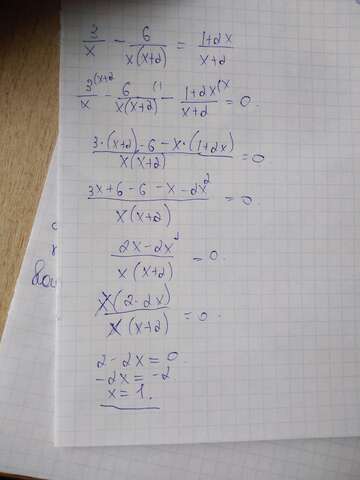 3/x - 6/(x(x+2)) = (1+2x)/(x+2)
3^(x+2/x - 6^(1/(x(x+2)) - 1+2x^(x/(x+2) = 0.
(3·(x+2)-6-x·(1+2x))/(x(x+2)) = 0
(3x+6-6-x-2x²)/(x(x+2)) = 0.
(2x-2x²)/(x(x+2)) = 0.
x(2-2x)/(x(x+2)) = 0.
2-2x=0.
-2x=-2
x=1.